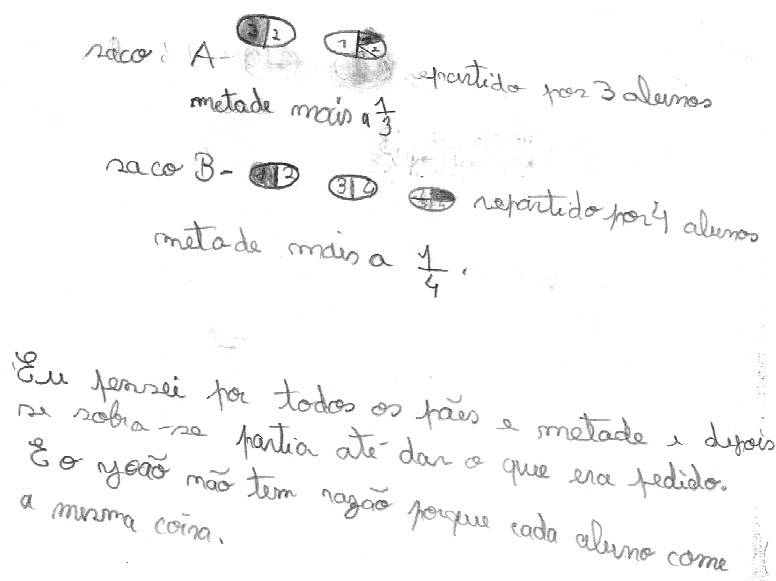 saco: A- 1 2 1 2 repartido por 3 alunos
metade mais a 1/3
saco B- 1 2 3 4 1 2 3 4 repartido por 4 alunos
metade mais a 1/4.
Eu pensei por todos os pães e metade e depois
se sobra-se partia até dar o que era pedido.
E o yoão não tem razão porque cada aluno come
a mesma coisa.